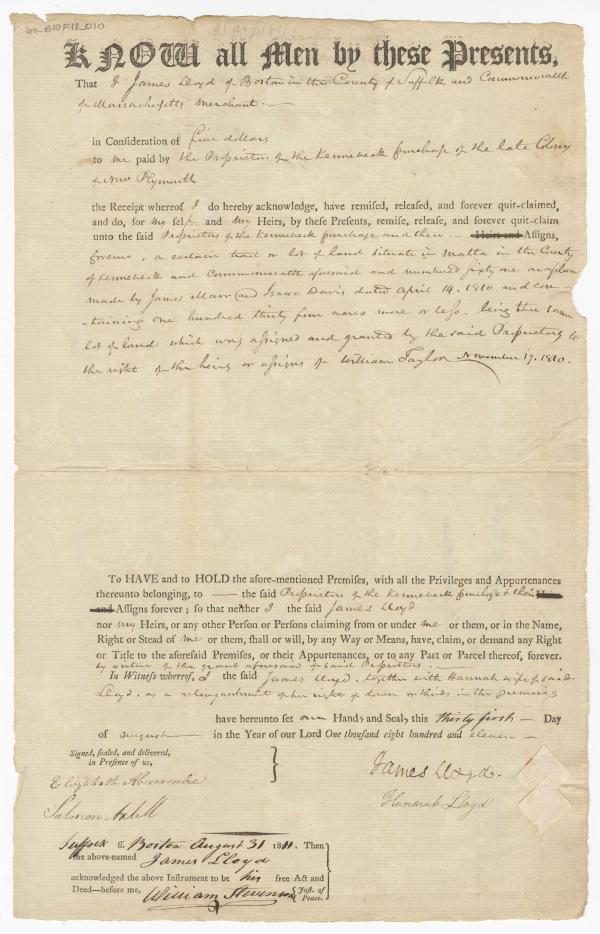 60-B10F12_010
KNOW all Men by these Presents,
That I James Lloyd of Boston in the County of Suffolk and Commonwealth
of Massachusetts merchant. —
in Consideration of five dollars
to me paid by the Proprietors of the Kennebeck purchase of the late Colony
of New Plymouth
the Receipt whereof I do hereby acknowledge, have remised, released, and forever quit-claimed,
and do, for my self and my Heirs, by these Presents, remise, release, and forever quit-claim
unto the said Proprietors of the Kennebeck purchase and their — Heirs and Assigns,
forever, a certain tract or lot of land situate in Malta in the County
of Kennebeck and Commonwealth aforesaid and numbered sixty one on a plan
made by James Marr and Isaac Davis dated April 14. 1810 and con-
-taining one hundred thirty four acres more or less. being the same
lot of land which was assigned and granted by the said Proprietors to
the right of the heirs or assigns of William Taylor November 17. 1810.
To HAVE and to HOLD the afore-mentioned Premises, with all the Privileges and Appurtenances
thereunto belonging, to — the said Proprietors of the Kennebeck purchase & their Heirs
and Assigns forever; so that neither I the said James Lloyd
nor my Heirs, or any other Person or Persons claiming from or under me or them, or in the Name,
Right or Stead of me or them, shall or will, by any Way or Means, have, claim, or demand any Right
or Title to the aforesaid Premises, or their Appurtenances, or to any Part or Parcel thereof, forever.
by virtue of the grant aforesaid of said Proprietors. —
In Witness whereof, I the said James Lloyd, together with Hannah wife of said
Lloyd, as a relinquishment of her right of dower or thirds in the premises
have hereunto set our Hands and Seals, this thirty first — Day
of august — in the Year of our Lord One thousand eight hundred and eleven —
Signed, sealed, and delivered,
in Presence of us,
Elizabeth Abercrombie
Salmon
James Lloyd.
Hannah Lloyd
Suffolk ss. Boston August 31 1811. Then
the above-named James Lloyd
acknowledged the above Instrument to be his free Act and
Deed—before me, William Stevenson Just. of
Peace.